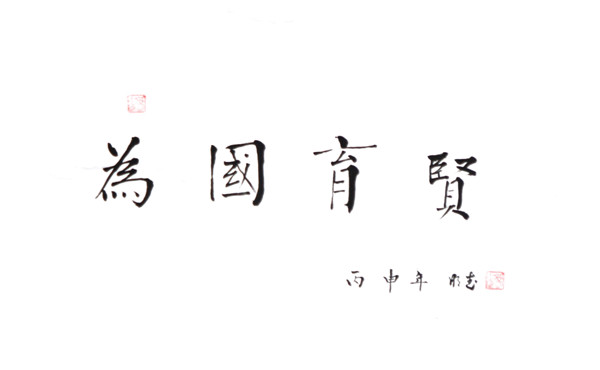 為國育賢
丙申年